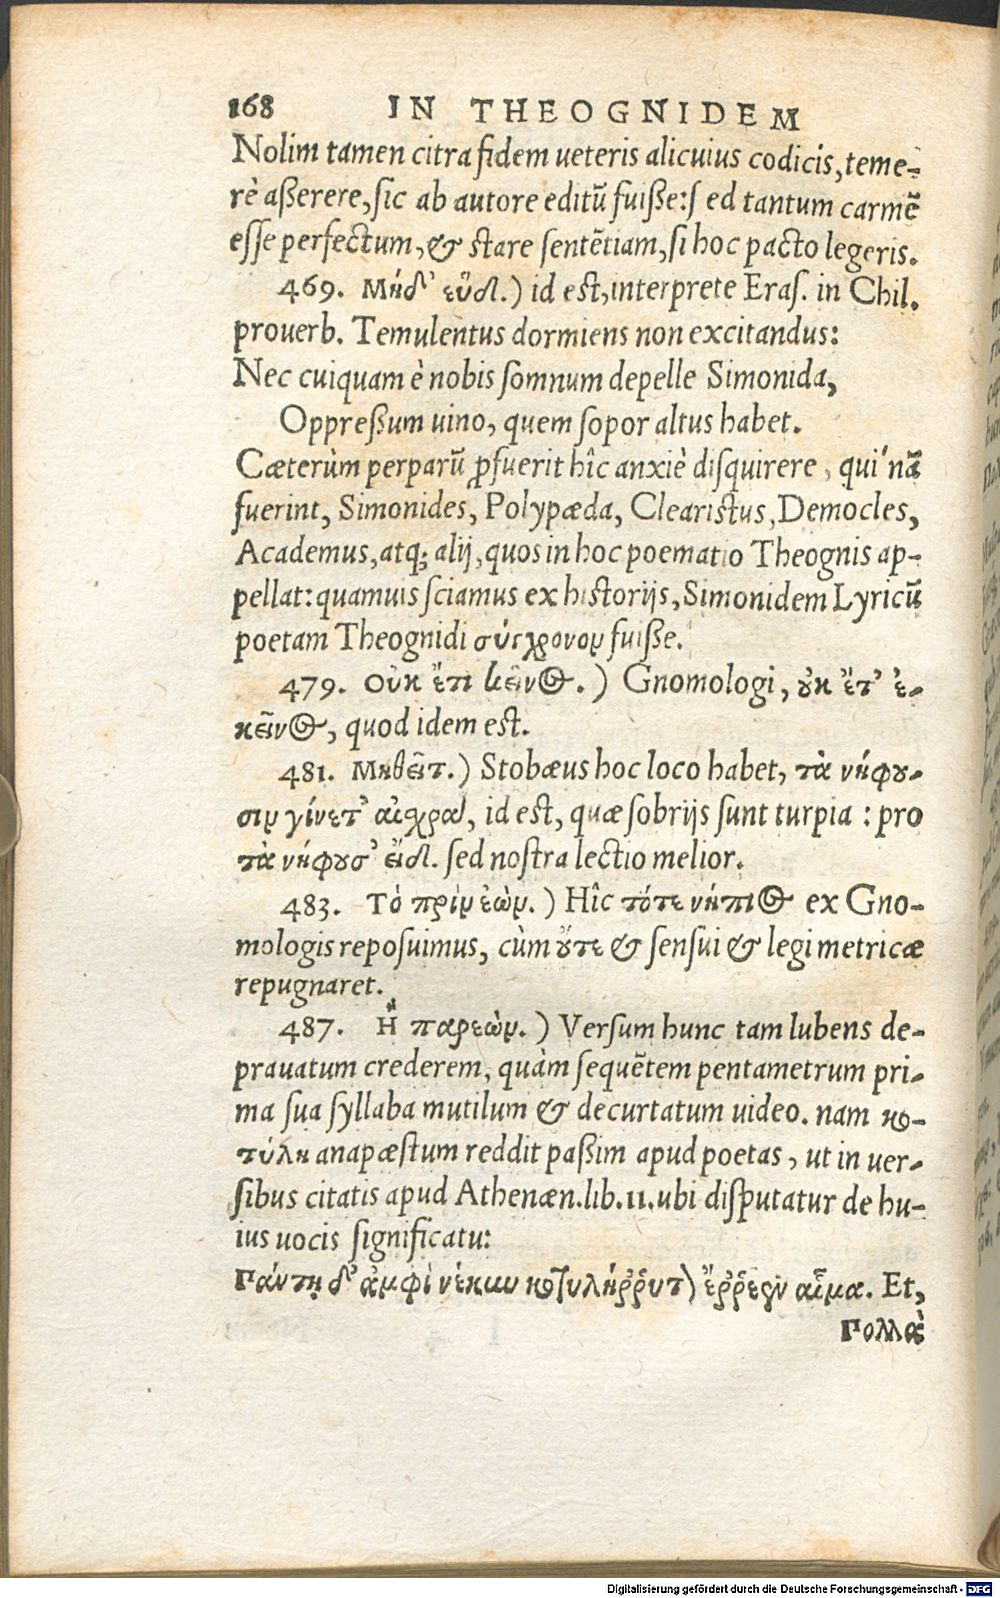 168 IN THEOGNIDEM
Nolim tamen citra fidem ueteris alicuius codicis, teme-
rè aßerere, sic ab autore editũ fuiße: s ed tantum carmẽ
esse perfectum, & stare sentẽtiam, si hoc pacto legeris.
469. Μηδ' εὕδ.) id est, interprete Eras. in Chil.
prouerb. Temulentus dormiens non excitandus:
Nec cuiquam è nobis somnum depelle Simonida,
Oppreßum uino, quem sopor altus habet.
Cæterùm perparũ ꝓfuerit hîc anxiè disquirere, qui nã
fuerint, Simonides, Polypæda, Clearistus, Democles,
Academus, atq; alij, quos in hoc poematio Theognis ap-
pellat: quamuis sciamus ex historijs, Simonidem Lyricũ
poetam Theognidi σύγχρονον fuiße.
479. Οὐκ ἔτι κεῖνος.) Gnomologi, οὐκ ἔτ' ἐ-
κεῖνος, quod idem est.
481. Μυθεῖτ.) Stobæus hoc loco habet, τὰ νήφου-
σιν γίνετ' αἰσχρὰ, id est, quæ sobrijs sunt turpia: pro
τὰ νήφουσ' εἴδ. sed nostra lectio melior.
483. Τὸ πρὶν ἐὼν.) Hîc τότε νήπιος ex Gno-
mologis reposuimus, cùm οὔτε & sensui & legi metricæ
repugnaret.
487. Ἢ παρεὼν.) Versum hunc tam lubens de-
prauatum crederem, quàm sequẽtem pentametrum pri-
ma sua syllaba mutilum & decurtatum uideo. nam κο-
τύλη anapæstum reddit paßim apud poetas, ut in uer-
sibus citatis apud Athenæn. lib. 11. ubi disputatur de hu-
ius uocis significatu:
Πάντη δ' ἀμφὶ νέκυν κοτυλήῤῥυτον ἔῤῥεεν αἷμα. Et,
Πολλὰ
Digitalisierung gefördert durch die Deutsche Forschungsgemeinschaft - DFG